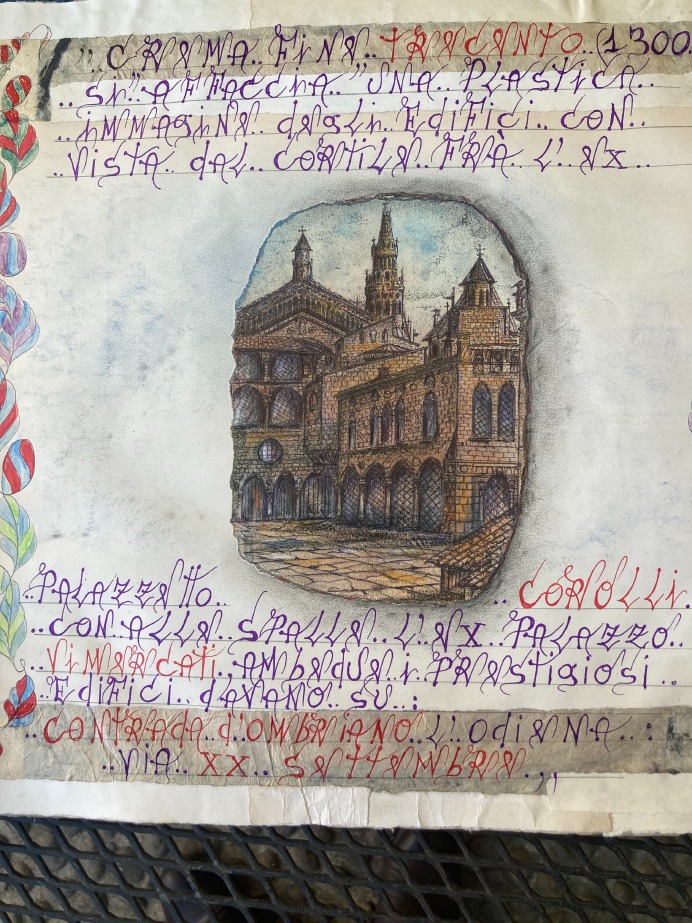 ,, CREMA.. FINE..TRECENTO..(1300
.. SI''AFFACCIA..''UNA.. PLASTICA..
.. IMMAGINE degli.. EdiFICI.. CON..
.. VISTA.. dAL.. CORTILE.. FRÀ.. L'.. EX..
..PALAZZETTO.. .. CONOLLI.
..CON ALLE.. SPALLE.. L'.. EX.. PALAZZO..
..VIMERCATI.. AMbEdUE.. i.. PRESTIGIOSI..
..EdiFICI.. dAVANO.. SU.. :
.. CONTRAdA..d'OMbRIANO..L'OdIERNA.. :
..VIA.. XX.. SETTEMbRE..,,